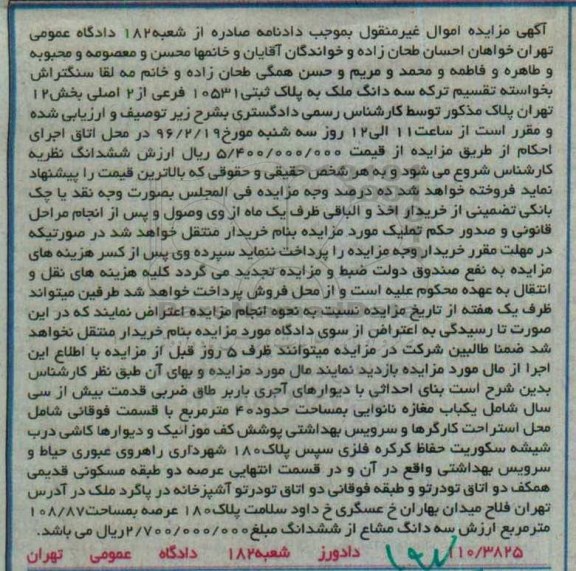 آگهی مزایده اموال غیرمنقول بموجب دادنامه صادره از شعبه۱۸۲ دادگاه عمومی
تهران خواهان احسان طحان زاده و خواندگان آقایان و خانمها محسن و معصومه و محبوبه
و طاهره و فاطمه و محمد و مریم و حسن همگی طحان زاده و خانم مه لقا سنگتراش
بخواسته تقسیم ترکه سه دانگ ملک به پلاک ثبتی۱۰۵۳۱ فرعی از۲ اصلی بخش۱۲
تهران پلاک مذکور توسط کارشناس رسمی دادگستری بشرح زیر توصیف و ارزیابی شده
و مقرر است از ساعت۱۱ الی۱۲ روز سه شنبه مورخ۹۶/۲/۱۹ در محل اتاق اجرای
احکام از طریق مزایده از قیمت ۵/۴۰۰/۰۰۰/۰۰۰ ریال ارزش ششدانگ نظریه
کارشناس شروع می شود و به هر شخص حقیقی و حقوقی که بالاترین قیمت را پیشنهاد
نماید فروخته خواهد شد ده درصد وجه مزایده فی المجلس بصورت وجه نقد یا چک
بانکی تضمینی از خریدار اخذ و الباقی ظرف یک ماه از وی وصول و پس از انجام مراحل
قانونی و صدور حکم تملیک مورد مزایده بنام خریدار منتقل خواهد شد در صورتیکه
در مهلت مقرر خریدار وجه مزایده را پرداخت ننماید سپرده وی پس از کسر هزینه های
مزایده به نفع صندوق دولت ضبط و مزایده تجدید می گردد کلیه هزینه های نقل و
انتقال به عهده محکوم علیه است و از محل فروش پرداخت خواهد شد طرفین میتواند
ظرف یک هفته از تاریخ مزایده نسبت به نحوه انجام مزایده اعتراض نمایند که در این
صورت تا رسیدگی به اعتراض از سوی دادگاه مورد مزایده بنام خریدار منتقل نخواهد
شد ضمنا طالبین شرکت در مزایده میتوانند ظرف ۵ روز قبل از مزایده با اطلاع این
اجرا از مال مورد مزایده بازدید نمایند مال مورد مزایده و بهای آن طبق نظر کارشناس
بدین شرح است بنای احداثی با دیوارهای آجری باربر طاق ضربی قدمت بیش از سی
سال شامل یکباب مغازه نانوایی بمساحت حدود۴۰ مترمربع با قسمت فوقانی شامل
محل استراحت کارگرها و سرویس بهداشتی پوشش کف موزائیک و دیوارها کاشی درب
شیشه سکوریت حفاظ کرکره فلزی سپس پلاک۱۸۰ شهرداری راهروی عبوری حیاط و
سرویس بهداشتی واقع در آن و در قسمت انتهایی عرصه دو طبقه مسکونی قدیمی
همکف دو اتاق تودرتو و طبقه فوقانی دو اتاق تودرتو آشپزخانه در پاگرد ملک در آدرس
تهران فلاح میدان بهاران خ عسگری خ داود سلامت پلاک۱۸۰ عرصه بمساحت۱۰۸/۸۷
مترمربع ارزش سه دانگ مشاع از ششدانگ مبلغ۲/۷۰۰/۰۰۰/۰۰۰ریال می باشد.
۱۱۰/۳۸۲۵ دادورز شعبه۱۸۲ دادگاه عمومی تهران